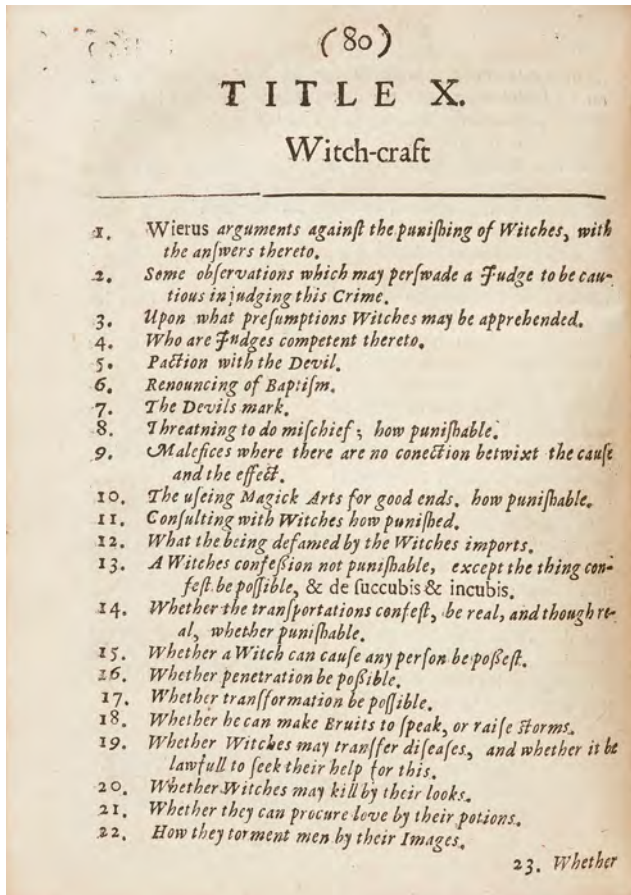 (80)
TITLE X.
Witch-craft
1. Wierus arguments againſt the puniſhing of Witches, with
the anſwers thereto.
2. Some obſervations which may perſwade a Judge to be cau-
tious in judging this Crime.
3. Upon what preſumptions Witches may be apprehended.
4. Who are Judges competent thereto.
5. Paction with the Devil.
6. Renouncing of Baptiſm.
7. The Devils mark.
8. Threatning to do miſchief; how puniſhable.
9. Malefices where there are no conection betwixt the cauſe
and the effect.
10. The uſeing Magick Arts for good ends. how puniſhable.
11. Conſulting with Witches how puniſhed.
12. What the being defamed by the Witches imports.
13. A Witches confeſsion not puniſhable, except the thing con-
feſt be poſſible, & de ſuccubis & incubis.
14. Whether the tranſportations confeſt, be real, and though re-
al, whether puniſhable.
15. Whether a Witch can cauſe any perſon be poſſeſt.
16. Whether penetration be poſsible.
17. Whether tranſformation be poſſible.
18. Whether he can make Bruits to ſpeak, or raiſe ſtorms.
19. Whether Witches may tranſfer diſeaſes, and whether it be
lawfull to ſeek their help for this.
20. Whether Witches may kill by their looks.
21. Whether they can procure love by their potions.
22. How they torment men by their Images.
23. Whether